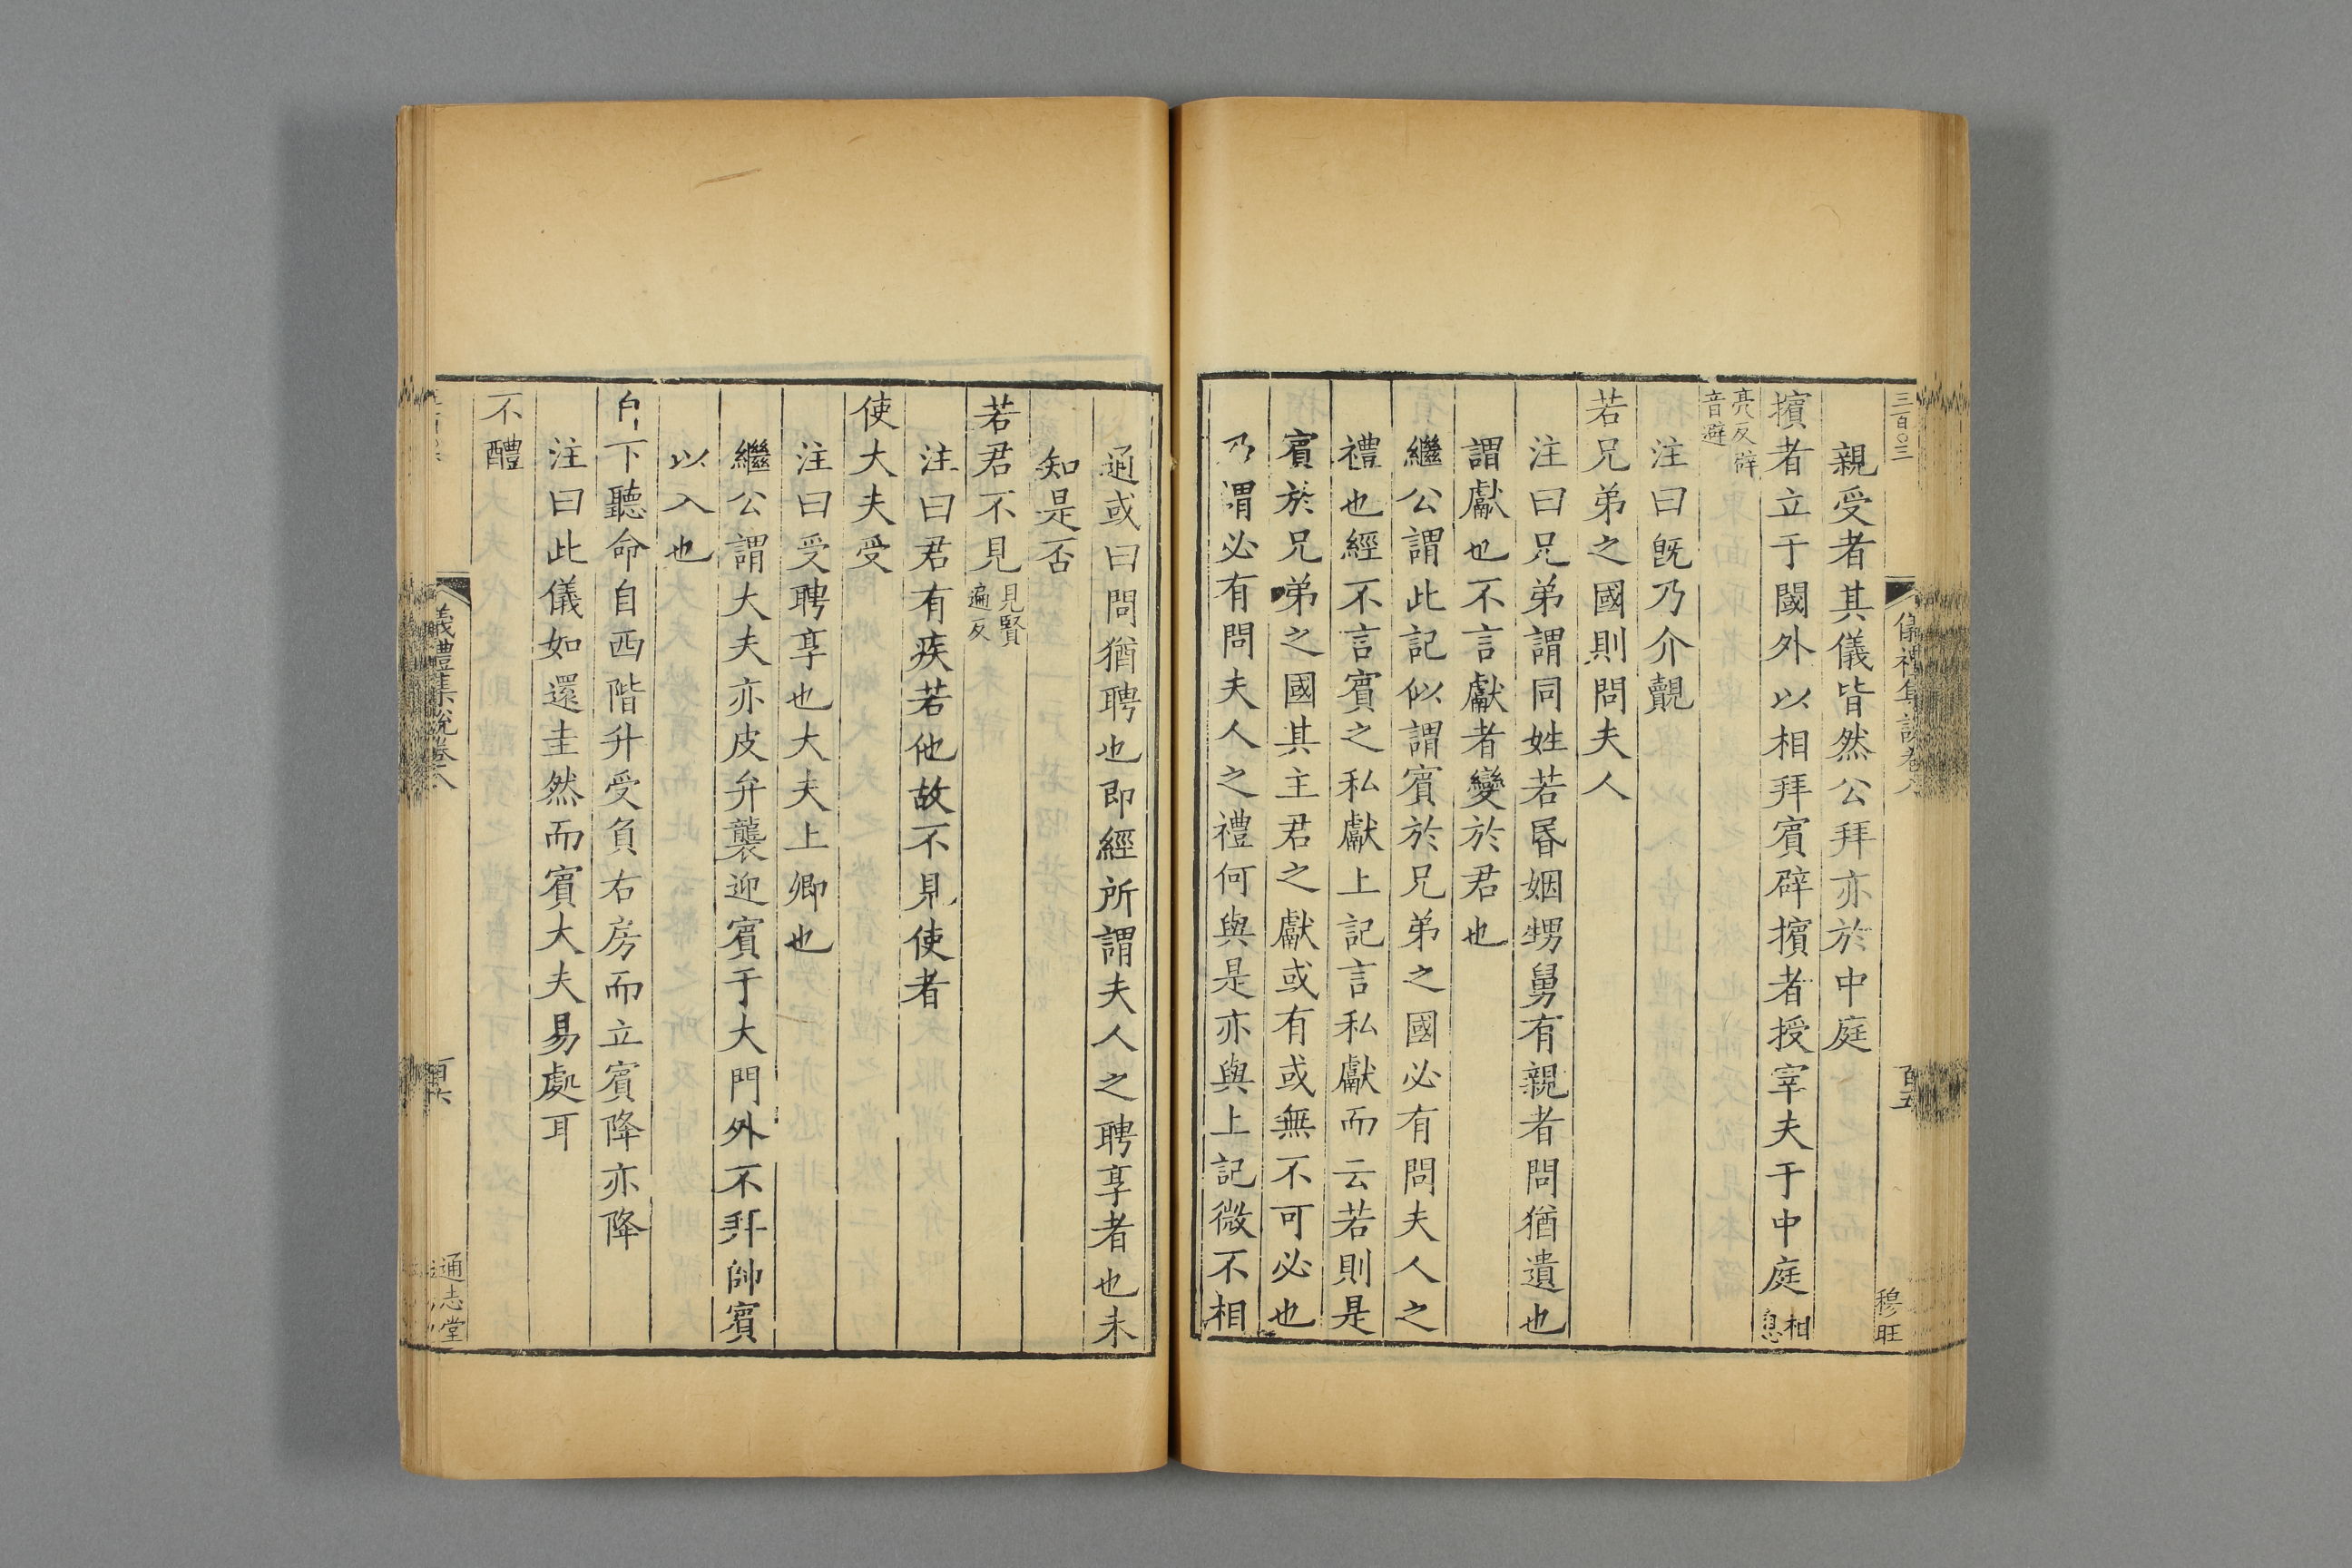 三百○三
儀禮集說卷八
百五
穆旺
親受者其儀皆然公拜亦於中庭
擯者立于閾外以相拜賓辟擯者授宰夫于中庭相息
亮反辟音避
注曰旣乃介覿
若兄弟之國則問夫人
注曰兄弟謂同姓若昬姻甥舅有親者問猶遺也
謂獻也不言獻者變於君也
繼公謂此記似謂賓於兄弟之國必有問夫人之
禮也經不言賓之私獻上記言私獻而云若則是
賓於兄弟之國其主君之獻或有或無不可必也
乃謂必有問夫人之禮何與是亦與上記微不相
通或曰問猶聘也即經所謂夫人之聘享者也未
知是否
若君不見見賢遍反
注曰君有疾若他故不見使者
使大夫受
注曰受聘享也大夫上卿也
繼公謂大夫亦皮弁襲迎賓于大門外不拜帥賓
以入也
自下聽命自西階升受負右房而立賓降亦降
注曰此儀如還圭然而賓大夫易處耳
不醴
儀禮集說卷八
百六
通志堂